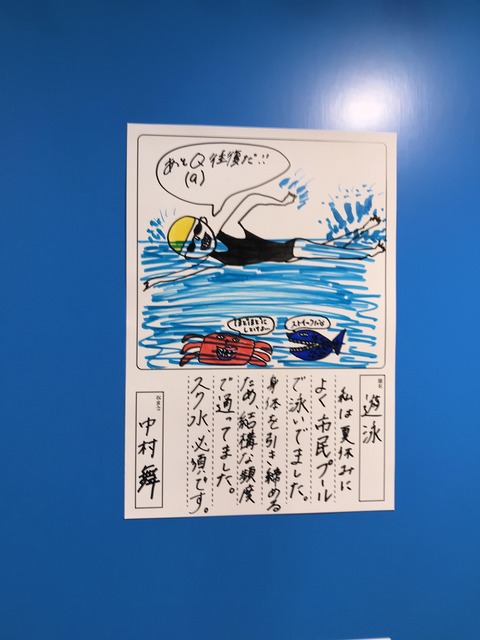 あとQ往復だ!!
(9)
ほどほどに
しとけよー
ストイックだな
題名
遊泳
私は夏休みに
よく市民プール
で泳いでました。
身体を引き締める
ため、結構な頻度
で通ってました。
スク水必須です。
中村舞